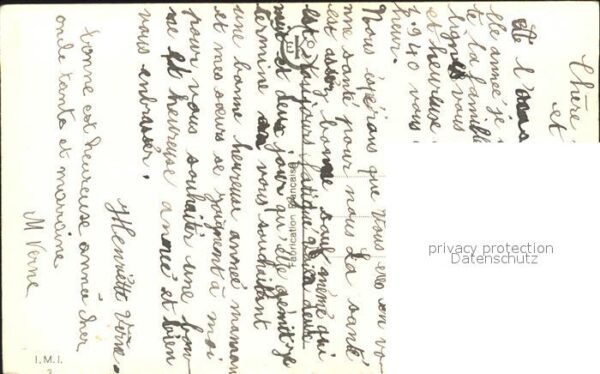 Chère
et
de l'
elle année je
te la famille
lignes vous
et heureuse
1.940 vous
heur.
Nous espérons que vous en
me santé pour nous La santé
est assez bonne sauf mémé qui
est toujours fatigué
nuit et deux jour qu'elle gémit je
termine en vous souhaitant
une bonne heureuse année maman
et mes sœurs se joignent à moi
pour vous souhaiter une bon
ne et heureuse année et bien
nous embrasser.
Henriette Verne.
bonne est heureuse année cher
oncle tante et marraine
M Verne
Fabrication Française
I.M.I.
privacy protection
Datenschutz